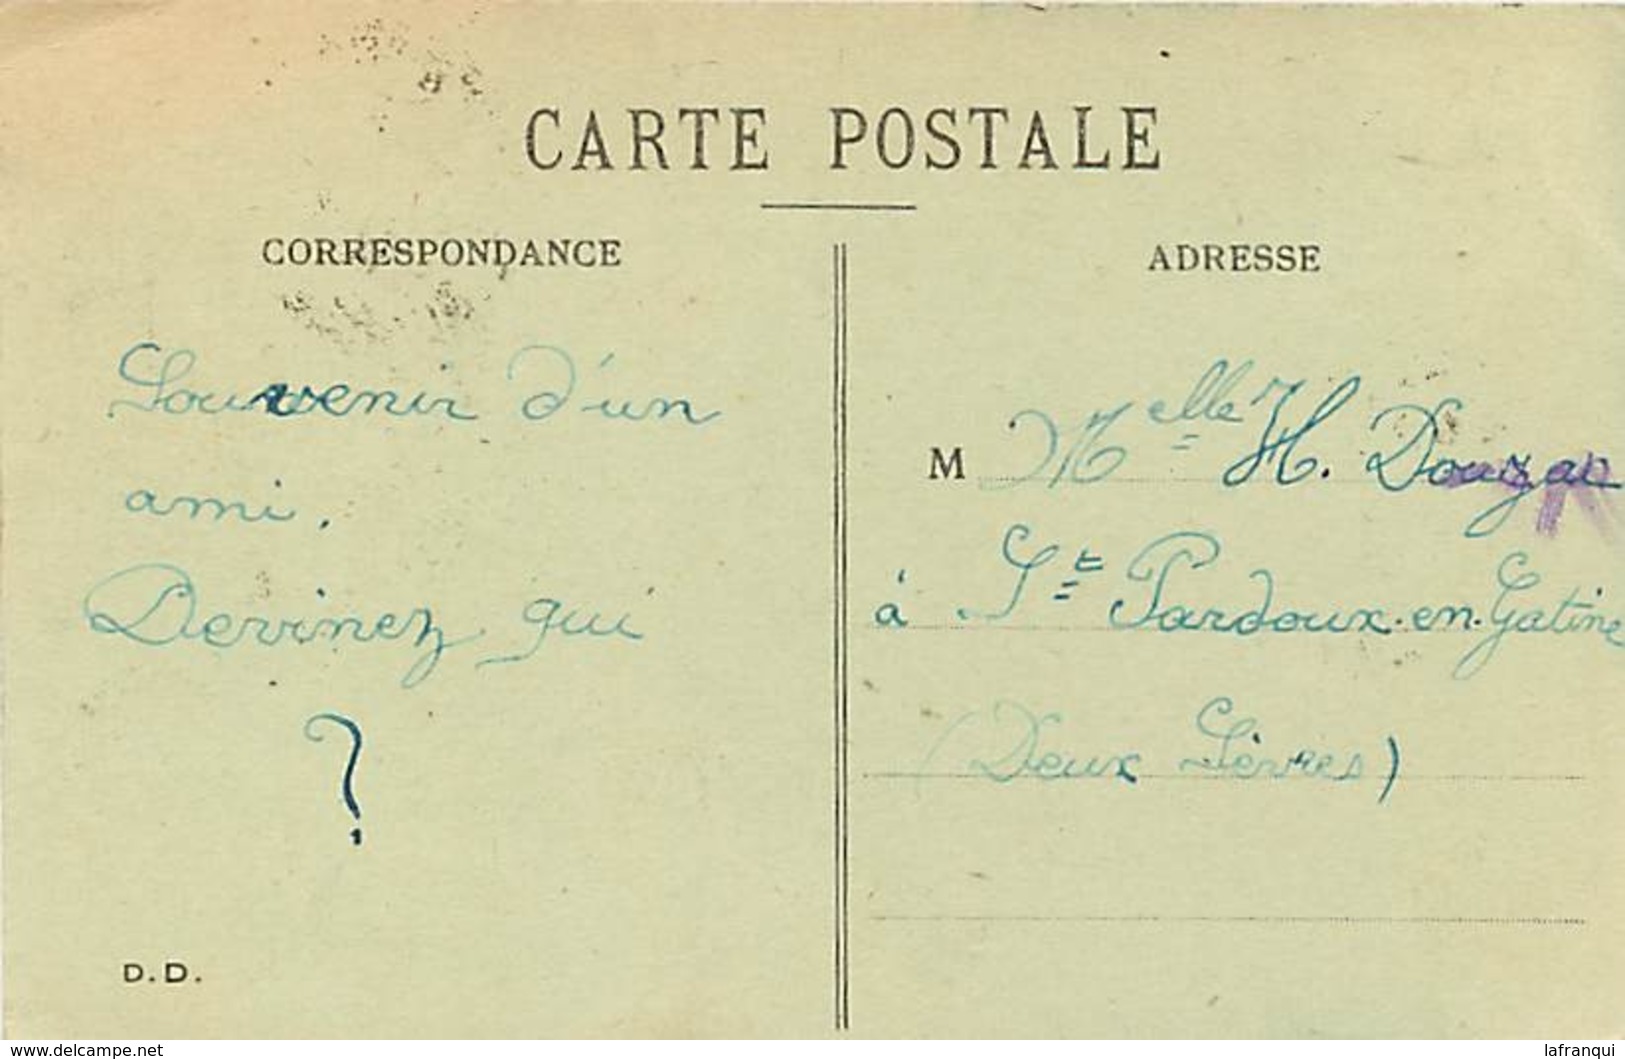 CARTE POSTALE
CORRESPONDANCE
ADRESSE
Souvenir d'un
ami.
Devinez qui
?
D.D.
M Melle H. Douzac
à St Pardoux-en-Gatine
(Deux Sèvres)
www.delcampe.net
lafranqui